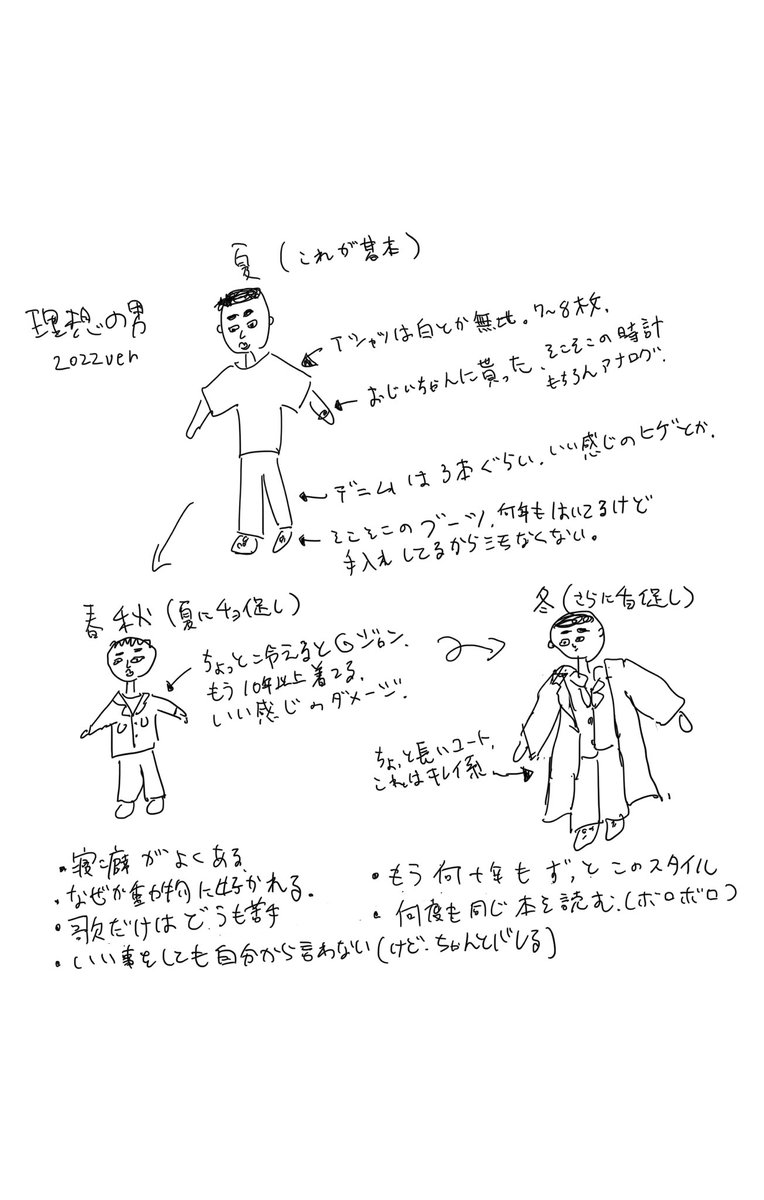 夏（これが基本）
理想の男
2022ver
Tシャツは白とか無地。7〜8枚.
おじいちゃんに貰った、そこそこの時計
もちろんアナログ.
デニムは3本ぐらい、いい感じのヒゲとか.
そこそこのブーツ、何年もはいてるけど
手入れしてるから三モなくない。
春秋（夏にチョイ足し）
ちょっと冷えるとGジャン.
もう10年以上着てる.
いい感じのダメージ.
冬（さらに足し）
ちょっと長いコート、
これはキレイ系
・寝癖がよくある.
・なぜか動物に好かれる.
・歌だけはどうも苦手
・いい事をしても自分から言わない（けど、ちゃんとバレる）
・もう何十年もずっとこのスタイル
・何度も同じ本を読む.（ボロボロ）